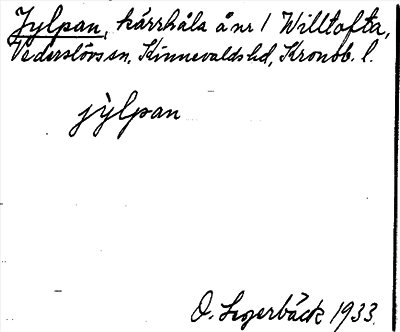 Jylpan, kärrhåla å nr 1 Willtofta,
Vederslövs sn, Kinnevalds hd, Kronob. l.
jỳlpan
O. Segerbäck 1933.